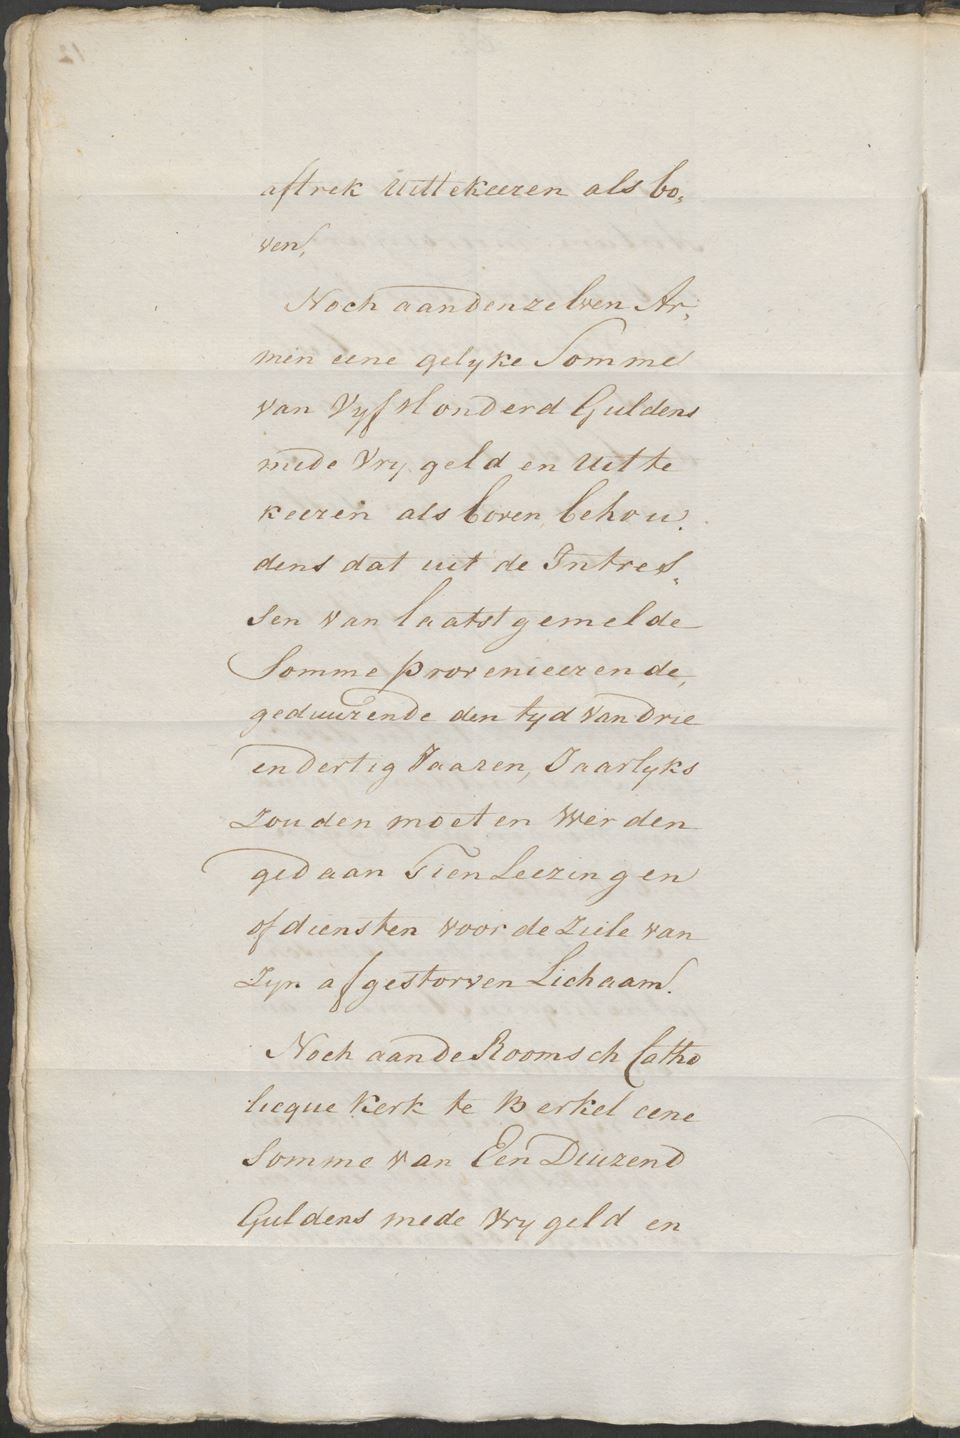 aftrek Uittekeeren als bo„
ven,
Noch aan denzelven Ar„
men eene gelyke Somme
van Vyf Honderd Guldens
mede Vry geld en Uitte
keeren als boven, behou„
dens dat uit de Intres„
sen van laatstgemelde
Somme provenieerende,
geduurende den tyd van drie
en dertig Jaaren, Jaarlyks
Zouden moeten Werden
gedaan Tien Leezingen
of diensten voor de Ziele van
Zyn afgestorven Lichaam.
Noch aan de Roomsch Catho
licque Kerk te Berkel eene
Somme van Een Duizend
Guldens mede Vry geld en